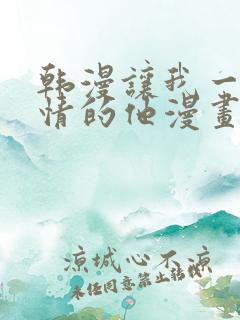 韩漫讓我一
情的他漫畫
凉城心不凉
未经同意禁止转载